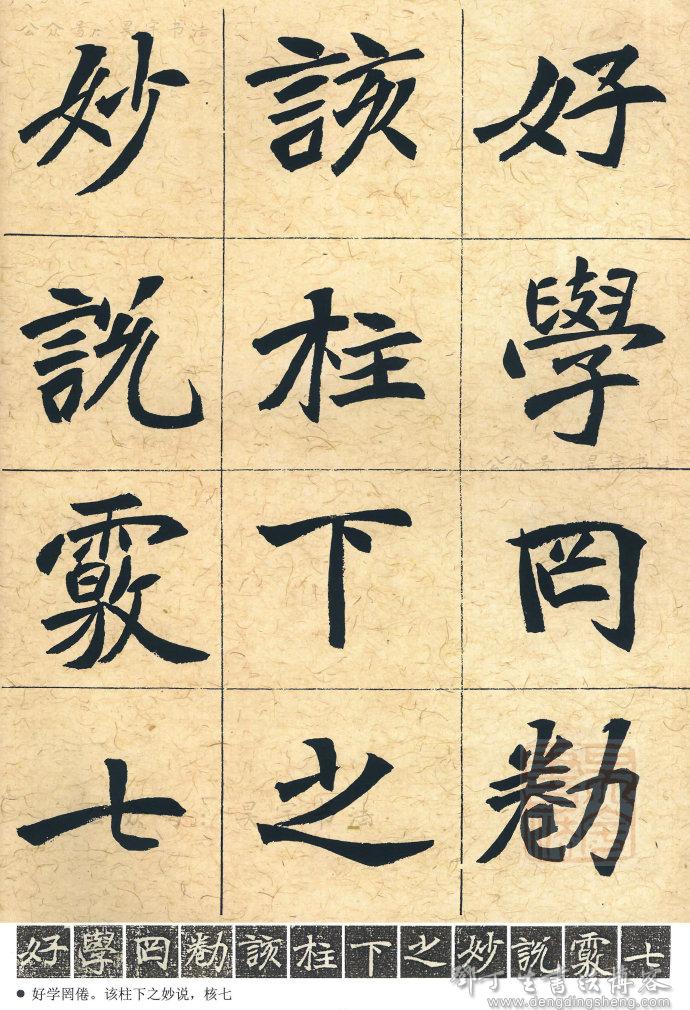 好學罔勌
該柱下之
妙説覈七
好學罔勌該柱下之妙説覈七
● 好学罔倦。该柱下之妙说，核七
邓丁生書法博客
www.dengdingsheng.com